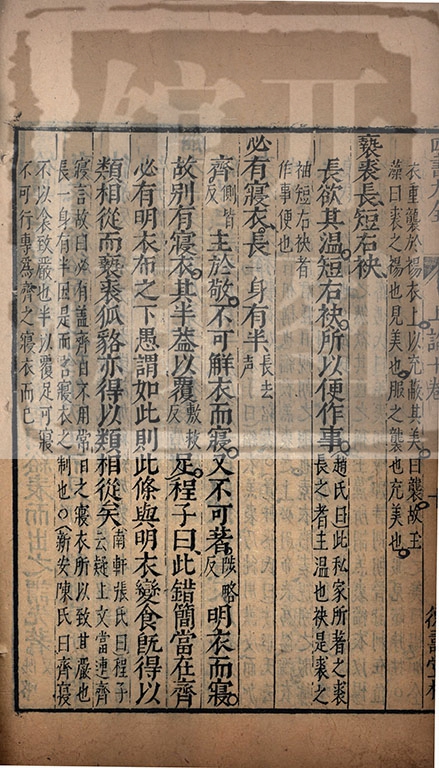 衣重襲於裼衣上以充蔽其美曰襲故玉
藻曰裘之裼也見美也服之襲也充美也
褻裘長短右袂
長欲其温短右袂所以便作事
趙氏曰此私家所著之裘
長之者主温也袂是裘之
袖短右袂者
作事便也
必有寢衣長一身有半
長去
聲
齊
側皆
反
主於敬不可解衣而寢又不可著
陟略
反
明衣而寢
故別有寢衣其半蓋以覆
敷救
反
足程子曰此錯簡當在齊
必有明衣布之下愚謂如此則此條與明衣變食旣得以
類相從而褻裘狐貉亦得以類相從矣
南軒張氏曰程子
云疑上文當連齊
寢言故曰必有蓋齊自不用常日之寢衣所以致其嚴也
長一身有半因是而言寢衣之制也
新安陳氏曰齊寢
不以衾致嚴也半以覆足可寢
不可行專為齊之寢衣而已